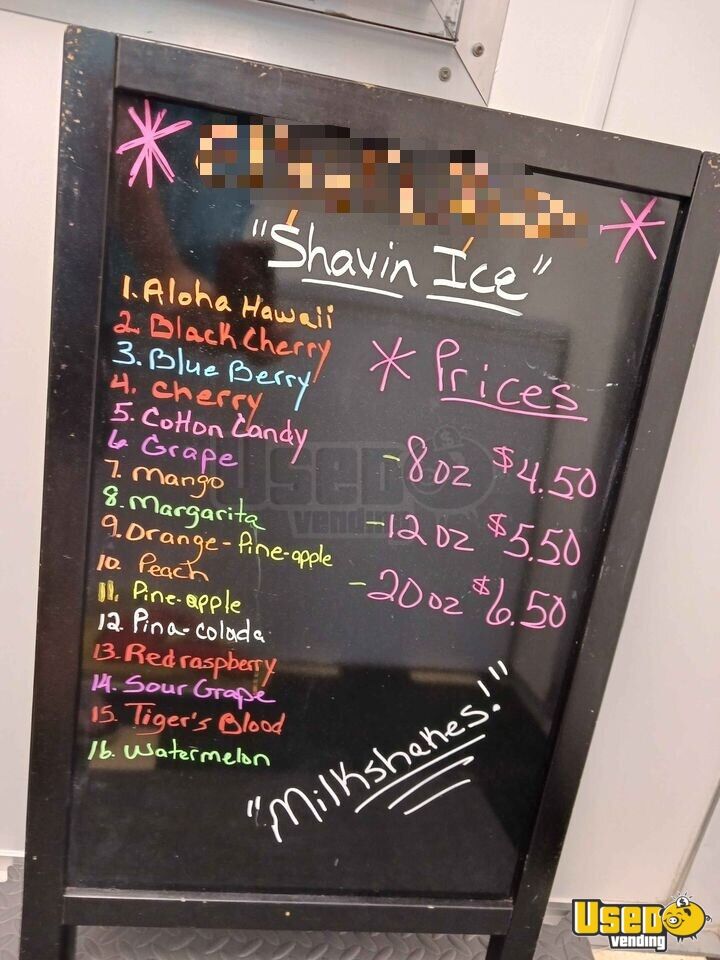 "Shavin Ice"
1. Aloha Hawaii
2. Black Cherry
3. Blue Berry
4. Cherry
5. Cotton Candy
6. Grape
7. Mango
8. Margarita
9. Orange-Pine-apple
10. Peach
11. Pine-apple
12. Pina-colada
13. Red raspberry
14. Sour Grape
15. Tiger's Blood
16. Watermelon
* Prices
-8oz $4.50
-12oz $5.50
-20oz $6.50
"Milkshakes!"
USED
vending
USED
vending